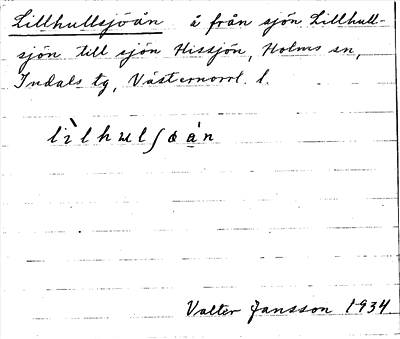 Lillhullsjöån å från sjön Lillhull-
sjön till sjön Hissjön, Holms sn,
Indals tg, Västernorrl. l.
lìlhulʃöán
Valter Jansson 1934